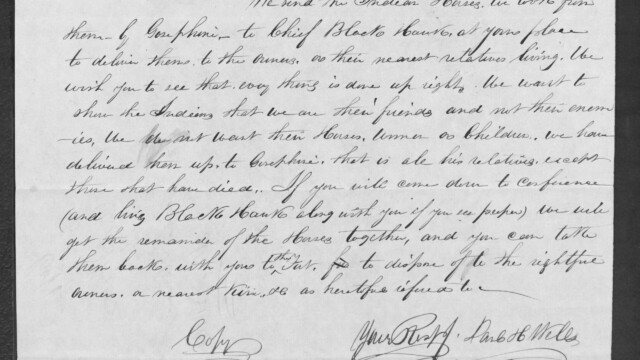 We send the Indian Horses, we took from
them - by Gosephine - to Chief Black Hawk, at your place
to deliver them, to the owners, or their nearest relatives living. We
wish you to see that evry thing is done up right, We want to
show the Indians that we are their friends and not their enem
-ies, We do not want their Horses, women or Children, we have
delivered them up, to Gosephine, that is all his relatives, except
those that have died. If you will come down to conference
(and bring Black Hawk along with you if you see proper) we will
get the remainder of the Horses together, and you can take
them back, with you to the Fort, to dispose of to the rightful
owners, or nearest Kin, &c as heretofore refered to
Copy Your Respt. Danl H Wells